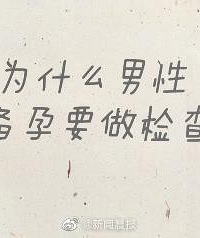 为什么男性
备孕要做检查
@新闻晨报